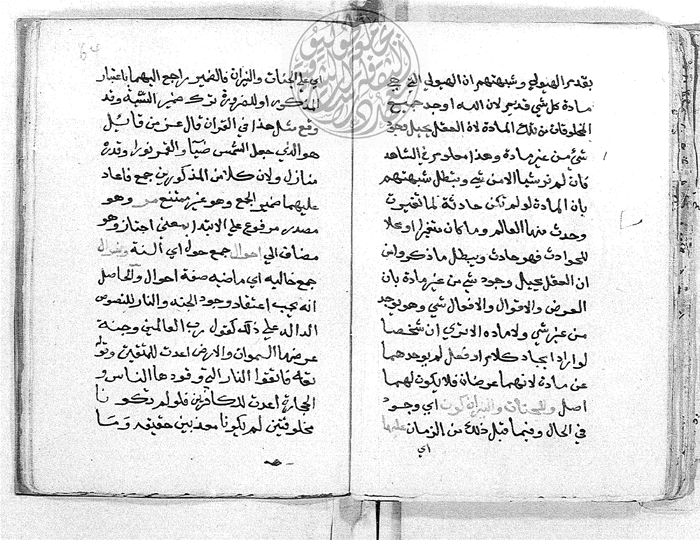 بقدم الهيولي وشبهتهم ان الهيولي التي هي
مادة كل شي قديم لان الله اوجد جميع
المخلوقات من تلك المادة لان العقل يحيل وجود
شي من غير مادة وهذا معلوم في الشاهد
فان لم نر شيا الا من شي ويبطل شبهتهم
بان المادة لو لم تكن حادثة لما تغيرت
وحدث منها العالم وما كان متغيرا او محلا
للحوادث فهو حادث ويبطل ما ذكروا من
ان العقل يحيل وجود شي من غير مادة بان
العرض والاقوال والافعال شي وهو يوجد
من غير شي ولا ماده الا تري ان شخصا
لو اراد ايجاد كلام او فعل لم يوجدهما
عن مادة لانهما عوضان فلا يكون لهما
اصل وللجنات والنيران كون اي وجود
في الحال وفيما قبل ذلك من الزمان عليها
اي
اي علي الجنات والنيران فالضمير راجع اليهما باعتبار
المذكور او للضرورة ترك ضمير التثنية وقد
وقع مثل هذا في القران قال عز من قائل
هو الذي جعل الشمس ضيا والقمر نورا وقدره
منازل ولان كلا من المذكورين جمع فاعاد
عليهما ضمير الجمع وهو غير ممتنع مر وهو
مصدر مرفوع علي الابتدا بمعني اجتاز وهو
مضاف الي احوال جمع حول اي السنة وخوال
جمع خاليه اي ماضيه صفة احوال والحاصل
انه يجب اعتقاد وجود الجنه والنار للنصوص
الدالة علي ذلك كقول رب العالمين وجنة
عرضها السموات والارض اعدت للمتقين وقو
له فاتقوا النار التي وقودها الناس و
الحجارة اعدت للكافرين فلو لم تكونا
مخلوقتين لم يكونا معدتين حقيقه وما